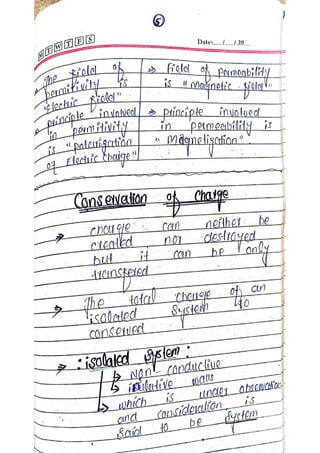 5
M T W T F S
Date:..../..../20...
→ The field of → Field of permeability
permitivity is is "magnetic field"
"Electric field"
→ principle involved → principle involved
in permitivity in permeability is
is "polarization "Magnetization"
of Electric charge"
Conservation of charge
→ charge can neither be
created nor destroyed
but it can be only
transfered
→ The total charge of an
isolated system is
conserved
→ : isolated system :
↳ Non conductive
↳ insulative walls
↳ which is under observation
and consideration is
said to be system